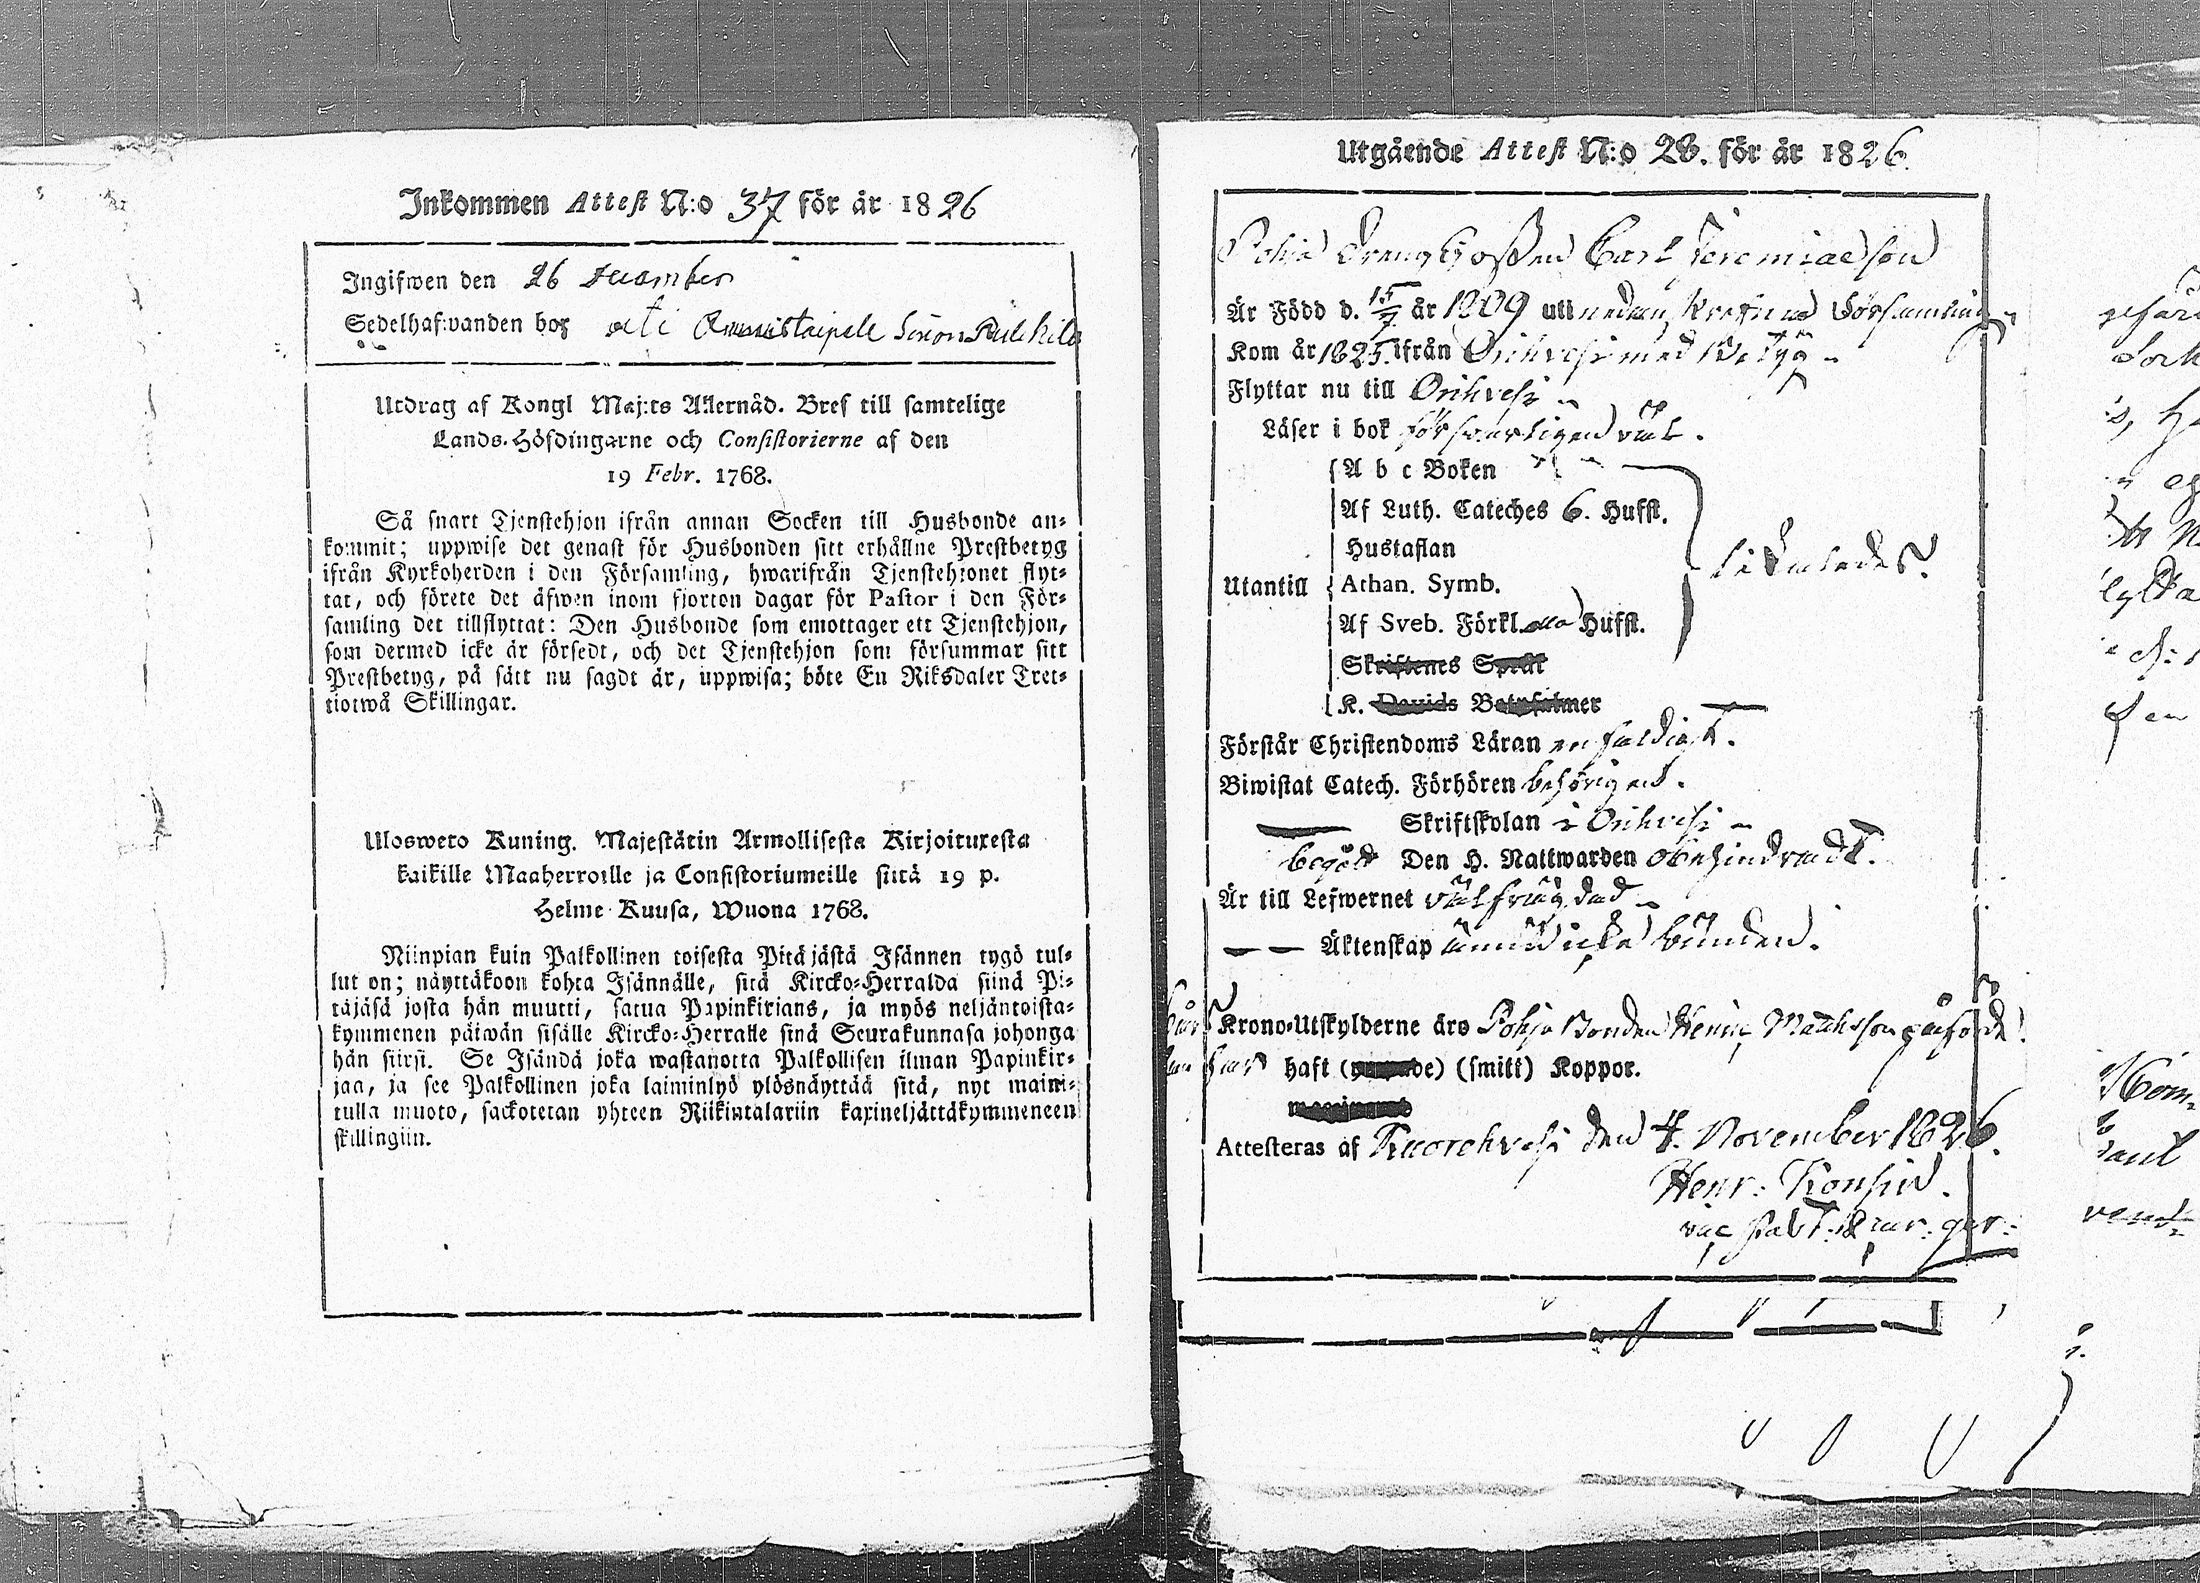 Inkommen Attest N:o 37 för år 1826
Ingifwen den 26 december
Sedelhafwanden bor uti Simon
Utdrag af Kongl Maj:ts Allernåd. Bref till samtelige
Lands-Höfdingarne och Consistorierne af den
19 Febr. 1768.
Så snart Tjenstehjon ifrån annan Socken till Husbonde an-
kommit; uppwise det genast för Husbonden sitt erhållne Prestbetyg
ifrån Kyrkoherden i den Församling, hwarifrån Tjenstehionet flyt-
tat, och förete det äfwen inom fjorton dagar för Pastor i den För-
samling det tillflyttat: Den Husbonde som emottager ett Tjenstehjon,
som dermed icke är försedt, och det Tjenstehjon som försummar sitt
Prestbetyg, på sätt nu sagdt är, uppwisa; böte En Riksdaler Tret-
tiotwå Skillingar.
Ulosweto Kuning. Majestätin Armollisesta Kirjoituxesta
kaikille Maaherroille ja Consistoriumeille siitä 19 p.
Helme-Kuusa, Wuona 1768.
Niinpian kuin Palkollinen toisesta Pitäjästä Isännen tygö tul-
lut on; näyttäkoon kohta Isännälle, sitä Kircko-Herralda siinä Pi-
täjäsä josta hän muutti, saatua Papinkirians, ja myös neljäntoista-
kymmenen päiwän sisälle Kircko-Herralle sinä Seurakunnasa johonga
hän siirsi. Se Isändä joka wastanotta Palkollisen ilman Papinkir-
jaa, ja see Palkollinen joka laiminlyö ylösnäyttää sitä, nyt maini-
tulla muoto, sackotetan yhteen Riikintalariin kaxineljättäkymmeneen
skillingiin.
Utgående Attest N:o 28. för år 1826.
Pohja Dreng Gossen Carl Jeremiaeson
Är Född d. 15/7 år 1809 uti nedan Församling
Kom år 1825. ifrån Orihvesi med Betyg
Flyttar nu till Orihvesi
Läser i bok försvarligen väl.
A b c Boken
Af Luth. Cateches 6. Hufst.
Hustaflan
Utantill Athan. Symb.
likaledes.
Af Sveb. Förkl. alla Hufst.
Skriftenes Språk
K. Davids Botpsalmer
Förstår Christendoms Läran enfaldigt.
Biwistat Catech. Förhören behörigent.
Skriftskolan i Orihvesi
begått Den H. Nattwarden obehindradt.
Är till Lefwernet välfrägdad
Äktenskap ännu icke bunden.
Krono-Utskylderne äro Pohja Bonden Henric Mattsson påförde.
haft (de) (smitt) Koppor.
Attesteras af Kuorehvesi den 4. November 1826.
Henr: Konsin.
vac past: & cur: ger: